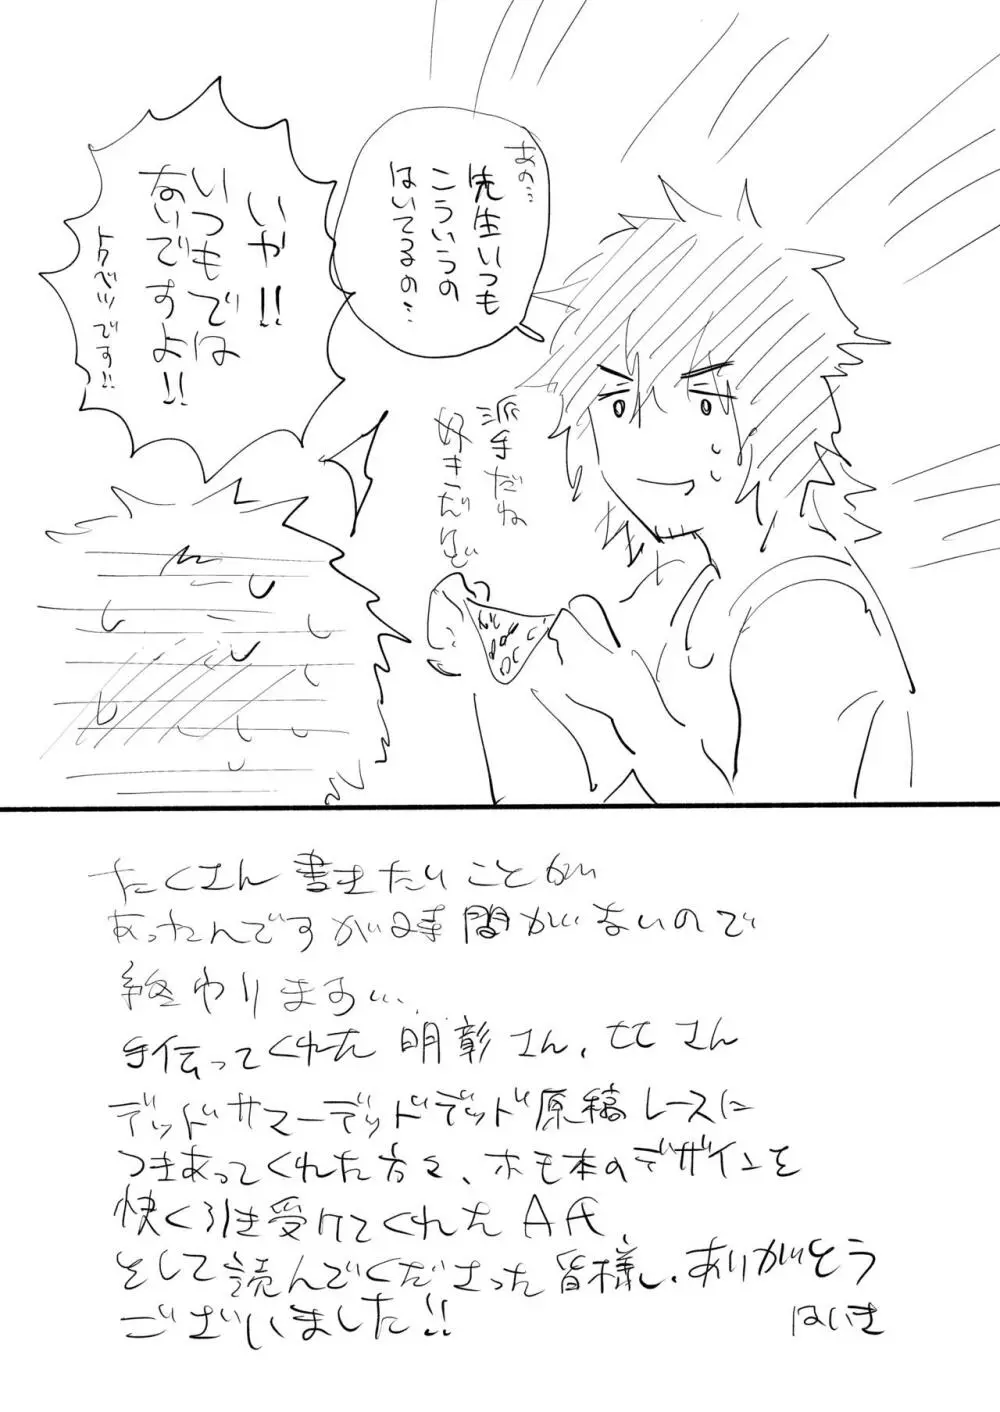 あの…
先生いつも
こういうの
はいてるの…
いや!!
いつもでは
ないですよ!!
トクベツです!!
派手だね
好きだけど
たくさん書きたいことが
あったんですが時間がないので
終わります…
手伝ってくれた明彰さん、ヒヒさん
デッドサマーデッドデッド原稿レースに
つきあってくれた方々、ホモ本のデザインを
快く引き受けてくれたA氏、
そして読んでくださった皆様し、ありがとう
ございました!!
はいき